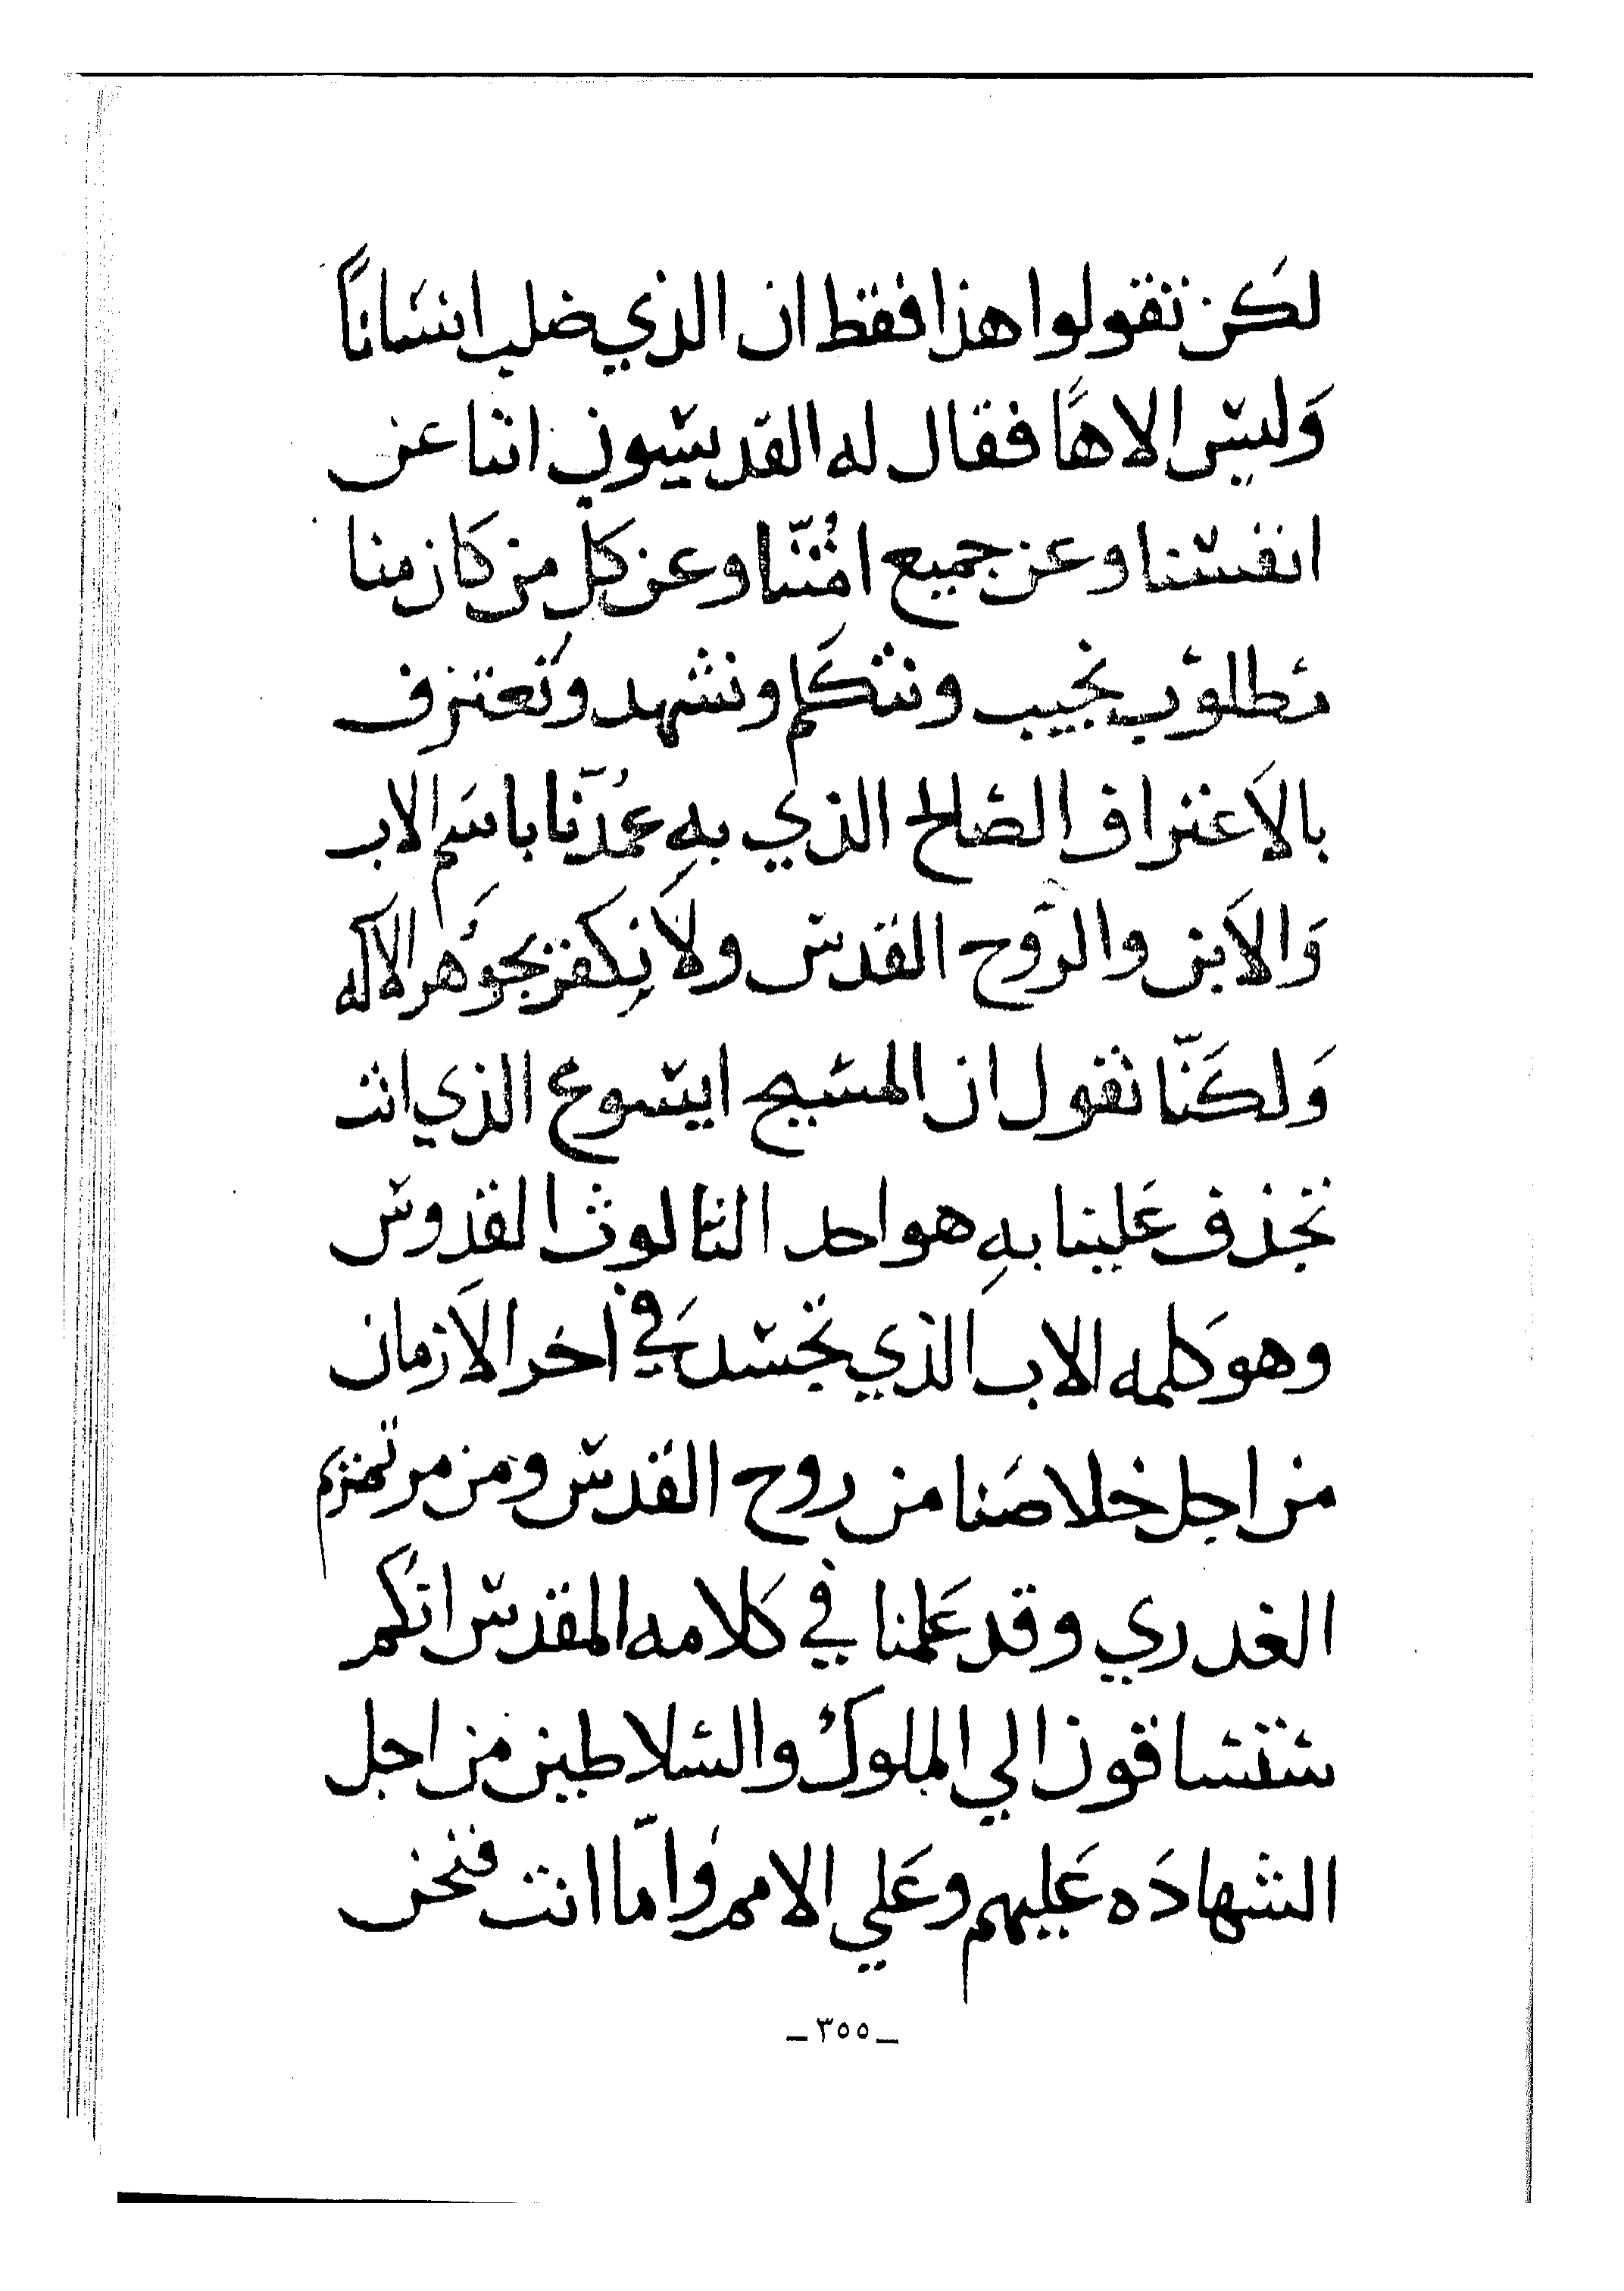 لكن تقولوا هذا فقط ان الذي صلب انسانًا
وَليس الاهًا فقال له القديسيون اننا عن
انفسنا وعن جميع امُتّنا وعن كل من كان منا
مطلوب نجيب ونتكلم ونشهد ونَعترف
بالاَعتراف الصالح الذي بهِ عمُدّنا باسَم الاب
وَالاَبن والرَوح القدس ولاَ نِكفر بجوَهر الاله
وَلكنّا نقول ان المسيح ايسوع الذي انت
تجذف عَلينا بهِ هو احد الثالوث القدوس
وهو كلمه الاب الذي تجسد في اخر الاَزمان
من اجل خلاصَنا من روح القدس ومن مرتمريم
العدري وقد عَلمنا في كلامه المقدس انكُم
ستساقون الي الملوك والسلاطين من اجل
الشهادَه عَليهم وعَلي الامم وَامّا انت فنحن
ـ ٣٥٥ ـ